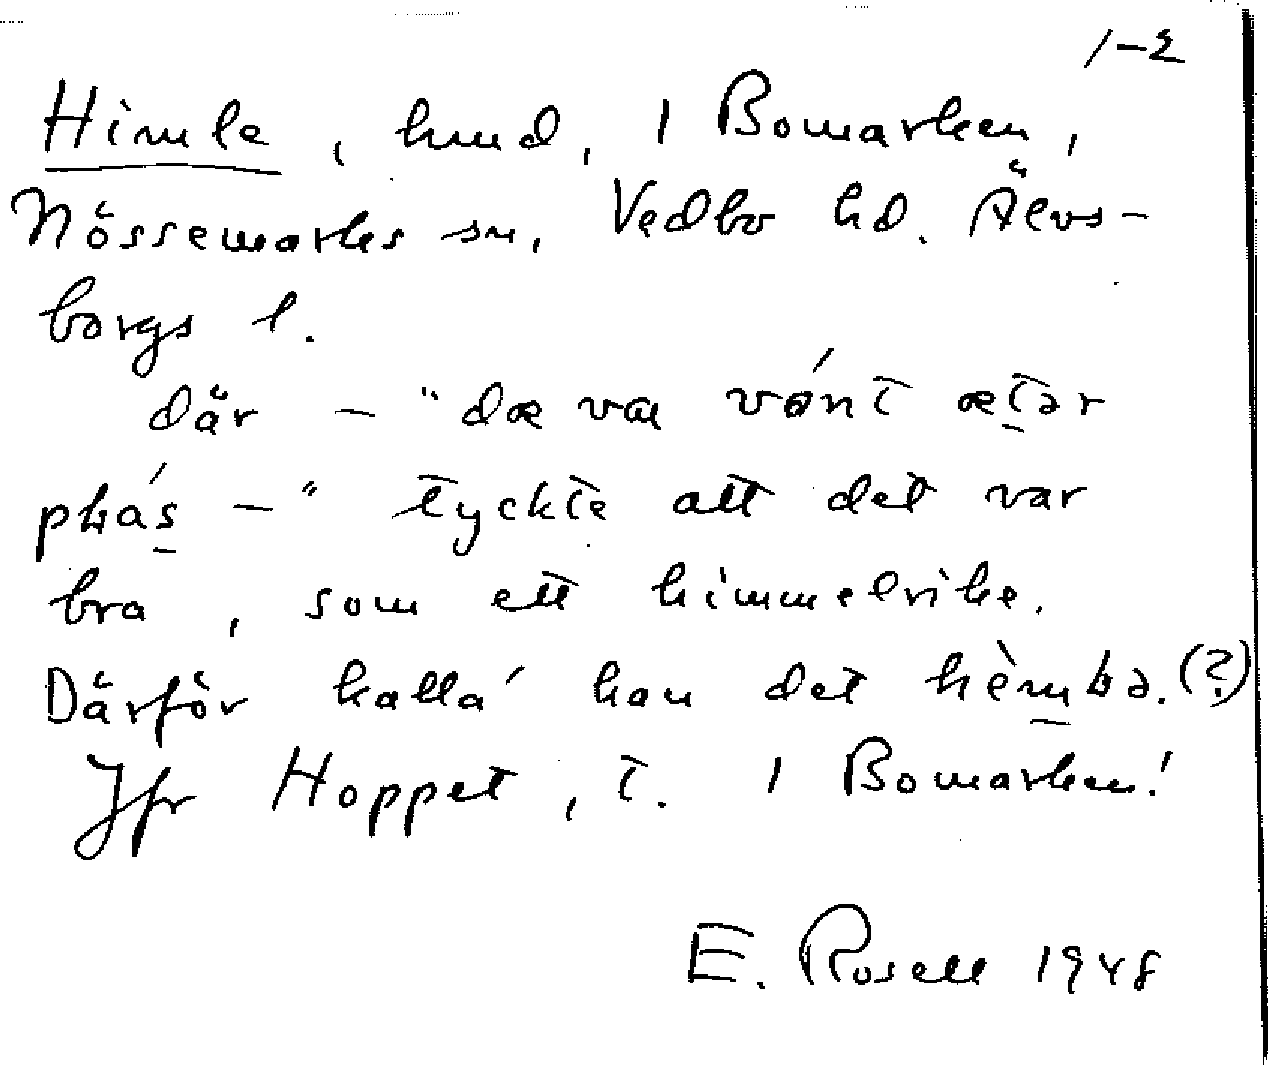 1-2
Himle, hmd, 1 Bomarken,
Nössemarks sn, Vedbo hd. Älvs-
borgs l.
där - "dæ va vónt ætər
plás -" tyckte att det var
bra, som ett himmelrike.
Därför kalla' han det hèmlə. (?)
Jfr Hoppet, t. 1 Bomarken!
E. Rosell 1948